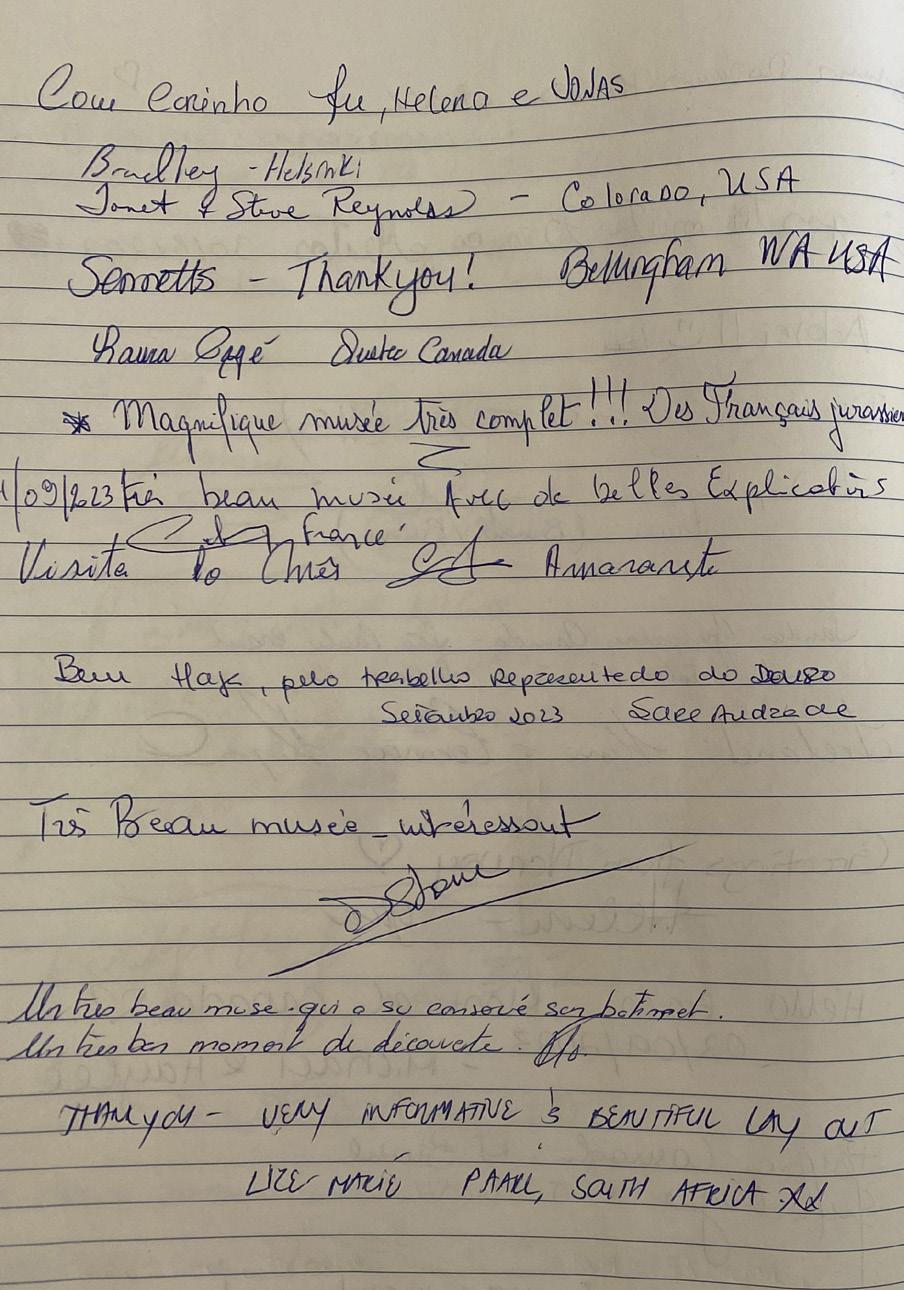 Com Carinho Ju, Helena e JONAS
Bradley - Helsinki
Janet & Steve Reynolds - Colorado, USA
Sennetts - Thank you! Bellingham WA USA
Laura Québec Canada
* Magnifique musée très complet!!! Des Français jurassien
/09/2023 très beau musée Avec de belles Explications
France
Visita Amarante
Bem Haja, pelo trabalho representado do Douro
Setembro 2023 Sara Andrade
Très Beau musée - intéressant
Un tres beau muse. qui a su conservé son batiment.
Un tres bon moment de découverte.
THANK YOU - VERY INFORMATIVE & BEAUTIFUL LAY OUT
LIZE-MARIÉ PAARL, SOUTH AFRICA XX